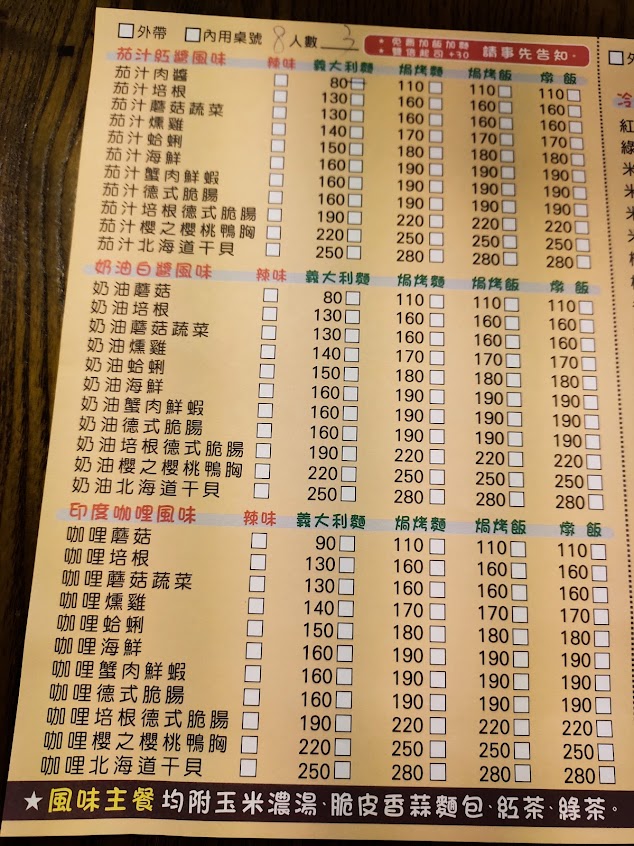 □外帶 □內用桌號 8 人數 3
• 免費加飯加麵
• 雙倍起司+30
請事先告知。
茄汁紅醬風味 辣味 義大利麵 焗烤麵 焗烤飯 燉飯
茄汁肉醬 □ 80□ 110□ 110□ 110□
茄汁培根 □ 130□ 160□ 160□ 160□
茄汁蘑菇蔬菜 □ 130□ 160□ 160□ 160□
茄汁燻雞 □ 140□ 170□ 170□ 170□
茄汁蛤蜊 □ 150□ 180□ 180□ 180□
茄汁海鮮 □ 160□ 190□ 190□ 190□
茄汁蟹肉鮮蝦 □ 160□ 190□ 190□ 190□
茄汁德式脆腸 □ 160□ 190□ 190□ 190□
茄汁培根德式脆腸 □ 190□ 220□ 220□ 220□
茄汁櫻之櫻桃鴨胸 □ 220□ 250□ 250□ 250□
茄汁北海道干貝 □ 250□ 280□ 280□ 280□
奶油白醬風味 辣味 義大利麵 焗烤麵 焗烤飯 燉飯
奶油蘑菇 □ 80□ 110□ 110□ 110□
奶油培根 □ 130□ 160□ 160□ 160□
奶油蘑菇蔬菜 □ 130□ 160□ 160□ 160□
奶油燻雞 □ 140□ 170□ 170□ 170□
奶油蛤蜊 □ 150□ 180□ 180□ 180□
奶油海鮮 □ 160□ 190□ 190□ 190□
奶油蟹肉鮮蝦 □ 160□ 190□ 190□ 190□
奶油德式脆腸 □ 160□ 190□ 190□ 190□
奶油培根德式脆腸 □ 190□ 220□ 220□ 220□
奶油櫻之櫻桃鴨胸 □ 220□ 250□ 250□ 250□
奶油北海道干貝 □ 250□ 280□ 280□ 280□
印度咖哩風味 辣味 義大利麵 焗烤麵 焗烤飯 燉飯
咖哩蘑菇 □ 90□ 110□ 110□ 110□
咖哩培根 □ 130□ 160□ 160□ 160□
咖哩蘑菇蔬菜 □ 130□ 160□ 160□ 160□
咖哩燻雞 □ 140□ 170□ 170□ 170□
咖哩蛤蜊 □ 150□ 180□ 180□ 180□
咖哩海鮮 □ 160□ 190□ 190□ 190□
咖哩蟹肉鮮蝦 □ 160□ 190□ 190□ 190□
咖哩德式脆腸 □ 160□ 190□ 190□ 190□
咖哩培根德式脆腸 □ 190□ 220□ 220□ 220□
咖哩櫻之櫻桃鴨胸 □ 220□ 250□ 250□ 250□
咖哩北海道干貝 □ 250□ 280□ 280□ 280□
★風味主餐 均附玉米濃湯、脆皮香蒜麵包、紅茶、綠茶。